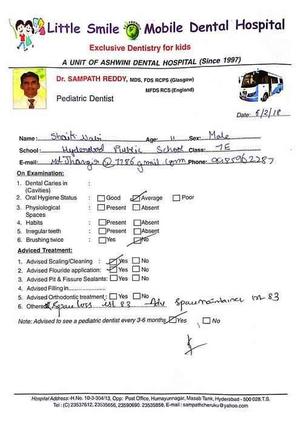 Little Smile Mobile Dental Hospital
Exclusive Dentistry for kids
A UNIT OF ASHWINI DENTAL HOSPITAL (Since 1997)
Dr. SAMPATH REDDY, MDS, FDS RCPS (Glasgow)
MFDS RCS (England)
Pediatric Dentist
Date: 8/3/18
Name: Shaik Nabi Age: 11 Sex: Male
School: Hyderabad Public School Class: 7E
E-mail: @7786gmail.com Phone:
On Examination:
1. Dental Caries in (Cavities)
2. Oral Hygiene Status : Good Average Poor
3. Physiological Spaces : Present Absent
4. Habits : Present Absent
5. Irregular teeth : Present Absent
6. Brushing twice : Yes No
Adviced Treatment:
1. Advised Scaling/Cleaning : Yes No
2. Advised Flouride application: Yes No
3. Advised Pit & Fissure Sealants: Yes No
4. Advised Filling in
5. Advised Orthodontic treatment : Yes No
6. Others: Space loss 83 Adv Spacemaintainer in 83
Note: Advised to see a pediatric dentist every 3-6 months Yes No
Hospital Address: H.No. 10-3-304/13, Opp: Post Office, Humayunnagar, Masab Tank, Hyderabad - 500 028.T.S.
Tel: (C) 23537612, 23535656, 23590690, 23535858, E-mail : sampathcheruku@yahoo.com